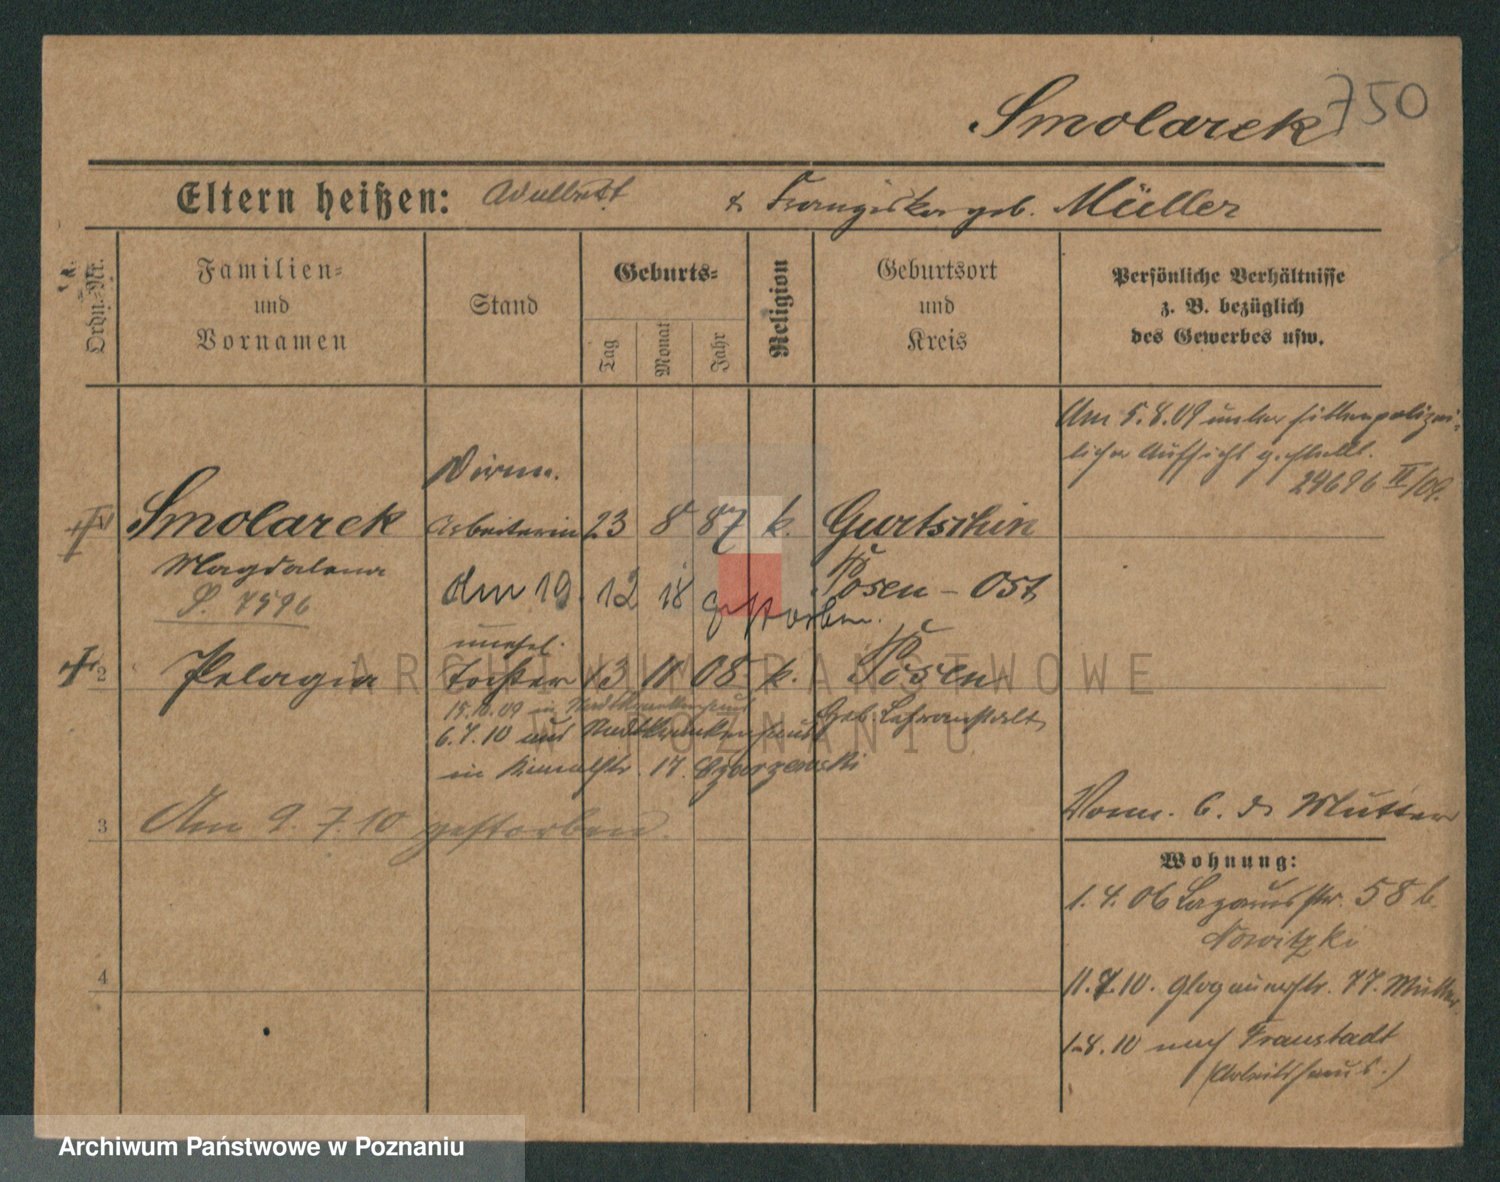 Smolarek 750
Eltern heißen: Adalbert & Franziska geb. Müller
Ordn.-Nr.
Familien- und Vornamen
Stand
Geburts-
Tag
Monat
Jahr
Religion
Geburtsort und Kreis
Persönliche Verhältnisse
z. B. bezüglich
des Gewerbes usw.
Am 5.8.09 unter sittenpolizei-
licher Aufsicht gestellt.
24696 II/09.
Smolarek Arbeiterin 23 8 87 k. Gurtschin
Magdalena
Posen - Ost
S. 7596
den 19. 12 18 gestorben.
unehel.
2 Pelagia Tochter 13 11 08 k. Posen
15.10.09 in Stadtkrankenhaus
Geb. Lehranstalt
6.7.10 aus Stadtkrankenhaus
in 17.
3 Am 9.7.10 gestorben.
Vorm. d. Mutter
Wohnung:
1.4.06 Lazarusstr. 58 b.
Nowitzki
4
11.7.10. Glogauerstr. 77. Mutter
1.8.10 nach Fraustadt
(Arbeitshaus.)
ARCHIWUM PAŃSTWOWE
W POZNANIU
Archiwum Państwowe w Poznaniu